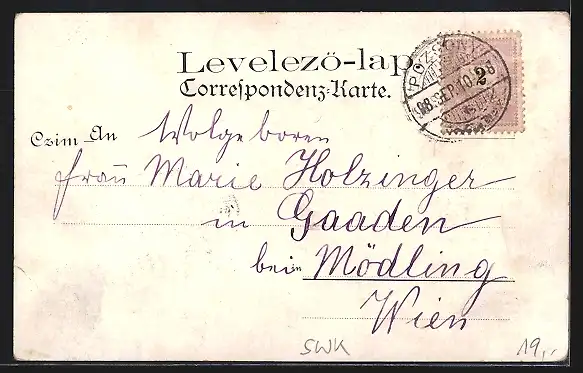 Levelező-lap
Correspondenz-Karte.
POZSONY
98. SEP. 10.
2
Czim An Wolgeboren
Frau Marie Holzinger
in Gaaden
bei Mödling
Wien
SWK 19,-